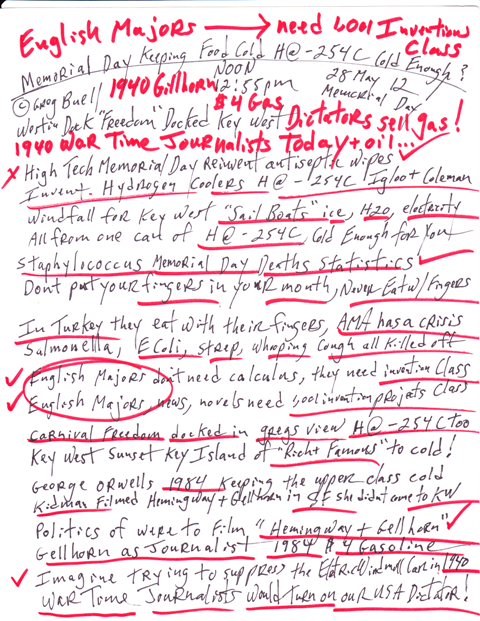 English Majors → need 1,001 Inventions Class
Memorial Day Keeping Food Cold H@-254C Cold Enough?
© Greg Buell/ 1940 Gellhorn NOON 2:55pm 28 May 12 Memorial Day
$4 Gas
Westin Dock "Freedom" Docked Key West Dictators sell gas!
1940 War Time Journalists Today + oil...
X High Tech Memorial Day Reinvent antiseptic wipes
Invent. Hydrogen Coolers H@-254C Igloo + Coleman
Windfall for Key West "Sail Boats" ice, H2O, electricity
All from one can of H@-254C, Cold Enough for You
Staphylococcus Memorial Day Deaths Statistics
Dont put your fingers in your mouth, Never Eat w/ Fingers
In Turkey they eat with their fingers, AMA has a crisis
Salmonella, E Coli, strep, whooping cough all killed off
✓ English Majors don't need calculus, they need invention Class
✓ English Majors, news, novels need 1,001 invention projects Class
Carnival Freedom docked in gregs view H@-254C Too
Key West Sunset Key Island of "Rich + Famous" to cold!
George Orwells 1984 Keeping the upper class cold
Kidman Filmed Hemingway + Gellhorn in SF she didnt come to KW
Politics of were to Film "Hemingway + Gellhorn"
Gellhorn as Journalist 1984 $4 Gasoline
✓ Imagine trying to suppress the Electric Windmill Car in 1940
War Time Journalists would turn on our USA Dictator!